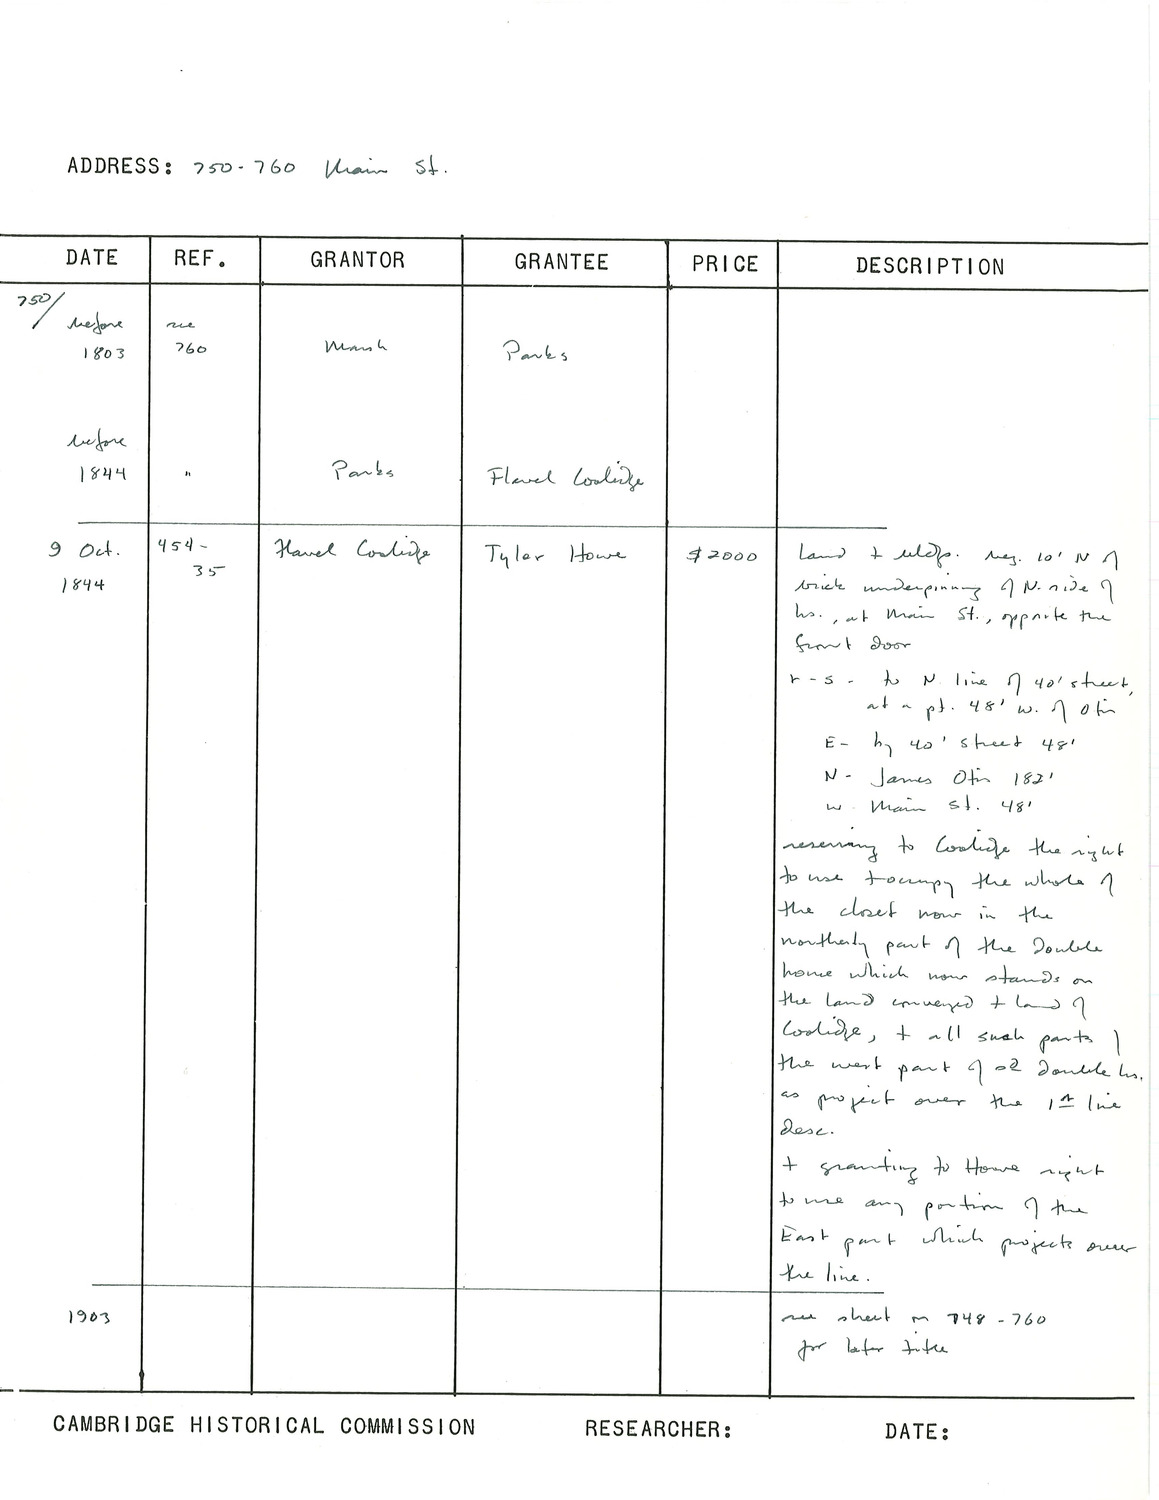 ADDRESS: 750-760 Main St.
DATE REF. GRANTOR GRANTEE PRICE DESCRIPTION
750/
before see
1803 760 Marsh Parks
before
1844 " Parks Flavel Coolidge
9 Oct. 454- Flavel Coolidge Tyler Howe $2000 land + bldgs. beg. 10' N of
1844 35 brick underpinning of N. side of
hs., at Main St., opposite the
front door
r - S - to N line of 40' street,
at a pt. 48' w. of Otis
E- by 40' street 48'
N- James Otis 182'
w. Main St. 48'
reserving to Coolidge the right
to use + occupy the whole of
the closet now in the
northerly part of the double
house which now stands on
the land conveyed + land of
Coolidge, + all such parts of
the west part of sd double hs.
as project over the 1st line
desc.
+ granting to Howe right
to use any portion of the
East part which projects over
the line.
1903 see sheet on 748-760
for later title
CAMBRIDGE HISTORICAL COMMISSION RESEARCHER: DATE: